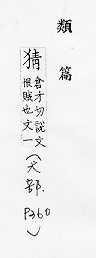 類篇
猜倉才切說文
恨賊也文一(犬部.P360)